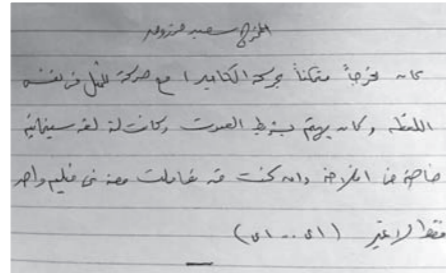 المخرج سعيد مرزوق
كان مخرجاً متمكناً بحركة الكاميرا مع حركة الممثل في نفس
اللقطة وكان يهتم بشريط الصوت وكانت له لغة سينمائية
خاصة في اخراجة وان كنت قد تعاملت معه في فيلم واحد
فقط لا غير (اى .. اى)